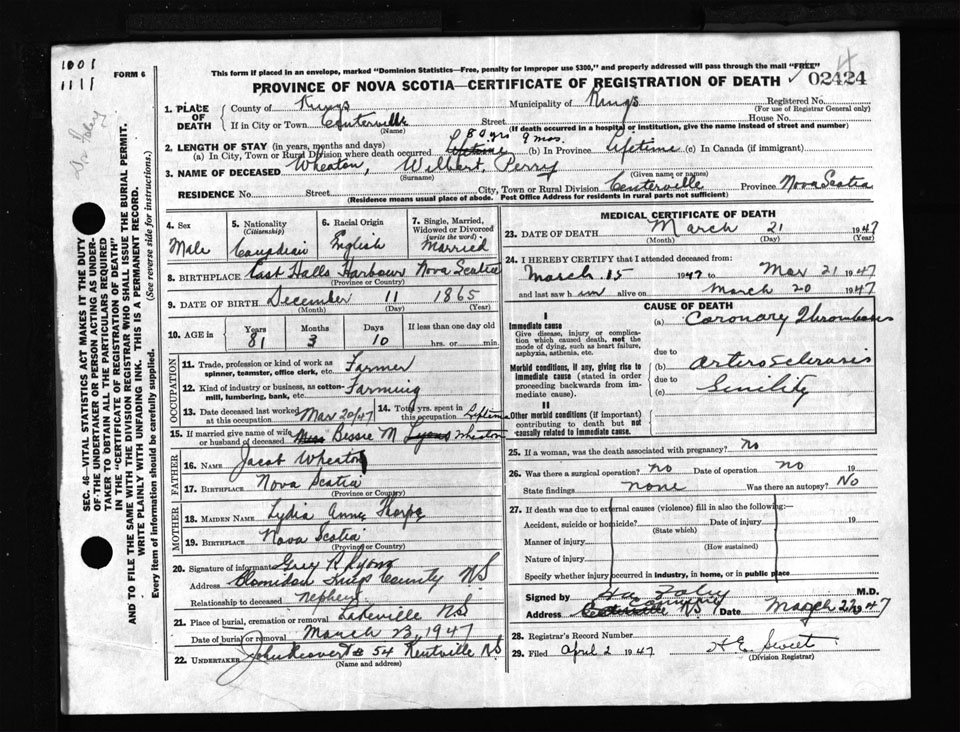 1001
1111
FORM 6
This form if placed in an envelope, marked "Dominion Statistics—Free, penalty for improper use $300," and properly addressed will pass through the mail "FREE"
PROVINCE OF NOVA SCOTIA—CERTIFICATE OF REGISTRATION OF DEATH 02424
Dr Foley
SEC. 46—VITAL STATISTICS ACT MAKES IT THE DUTY
OF THE UNDERTAKER OR PERSON ACTING AS UNDER-
TAKER TO OBTAIN ALL THE PARTICULARS REQUIRED
IN THE "CERTIFICATE OF REGISTRATION OF DEATH"
AND TO FILE THE SAME WITH THE DIVISION REGISTRAR WHO SHALL ISSUE THE BURIAL PERMIT.
WRITE PLAINLY WITH UNFADING INK. THIS IS A PERMANENT RECORD.
Every item of information should be carefully supplied. (See reverse side for instructions.)
1. PLACE OF DEATH
County of Kings Municipality of Kings Registered No.
(For use of Registrar General only)
If in City or Town Centerville Street House No.
(Name) (If death occurred in a hospital or institution, give the name instead of street and number)
2. LENGTH OF STAY (in years, months and days) 80 yrs 9 mos.
(a) In City, Town or Rural Division where death occurred Lifetime (b) In Province Lifetime (c) In Canada (if immigrant)
3. NAME OF DECEASED Wheaton, Wilbert, Perry
(Surname) (Given name or names)
RESIDENCE No. Street City, Town or Rural Division Centerville Province Nova Scotia
(Residence means usual place of abode. Post Office Address for residents in rural parts not sufficient)
4. Sex Male
5. Nationality (Citizenship) Canadian
6. Racial Origin English
7. Single, Married, Widowed or Divorced (write the word) Married
8. BIRTHPLACE East Halls Harbour Nova Scotia
(Province or Country)
9. DATE OF BIRTH December 11 1865
(Month) (Day) (Year)
10. AGE in Years Months Days If less than one day old
81 3 10 hrs. or min.
OCCUPATION
11. Trade, profession or kind of work as spinner, teamster, office clerk, etc. Farmer
12. Kind of industry or business, as cotton-mill, lumbering, bank, etc. Farming
13. Date deceased last worked at this occupation Mar 20/47 14. Total yrs. spent in this occupation Lifetime
15. If married give name of wife or husband of deceased Miss Bessie M Lyons Wheaton
FATHER
16. NAME Jacob Wheaton
17. BIRTHPLACE Nova Scotia
(Province or Country)
MOTHER
18. MAIDEN NAME Lydia Anne Thorpe
19. BIRTHPLACE Nova Scotia
(Province or Country)
20. Signature of informant R Lyons
Address Kings County NS
Relationship to deceased nephew
21. Place of burial, cremation or removal Lakeville N.S.
Date of burial or removal March 23, 1947
22. UNDERTAKER 54 Kentville NS
(Name and address)
MEDICAL CERTIFICATE OF DEATH
23. DATE OF DEATH March 21 1947
(Month) (Day) (Year)
24. I HEREBY CERTIFY that I attended deceased from:
March 15 1947 to Mar 21 1947
and last saw him alive on March 20 1947
CAUSE OF DEATH
I
Immediate cause
Give disease, injury or complication which caused death, not the mode of dying, such as heart failure, asphyxia, asthenia, etc.
(a) Coronary Thrombosis
due to
Morbid conditions, if any, giving rise to immediate cause (stated in order proceeding backwards from immediate cause).
(b) Arterosclerosis
due to
(c) Senility
II
Other morbid conditions (if important) contributing to death but not causally related to immediate cause.
25. If a woman, was the death associated with pregnancy? No
26. Was there a surgical operation? No Date of operation no 19
State findings none Was there an autopsy? No
27. If death was due to external causes (violence) fill in also the following:—
Accident, suicide or homicide? Date of injury 19
(State which)
Manner of injury
(How sustained)
Nature of injury
Specify whether injury occurred in industry, in home, or in public place
Signed by M.D.
Address N.S. Date March 1947
28. Registrar's Record Number
29. Filed April 2 1947 H E. Sweet
(Division Registrar)